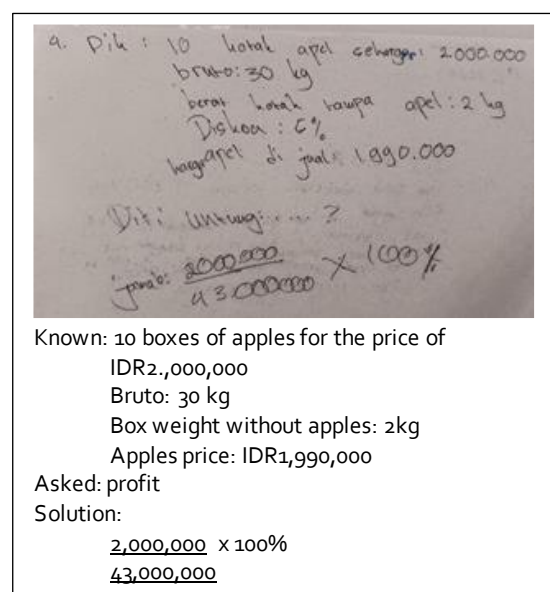 9. Dik : 10 kotak apel seharga: 2.000.000
bruto: 30 kg
berat kotak tanpa apel: 2 kg
Diskon : 5%
harga apel di jual: 1.990.000
Dit: Untung..... ?
jawab: 2000.000 X 100%
43.000000
Known: 10 boxes of apples for the price of
IDR2.,000,000
Bruto: 30 kg
Box weight without apples: 2kg
Apples price: IDR1,990,000
Asked: profit
Solution:
2,000,000 x 100%
43,000,000